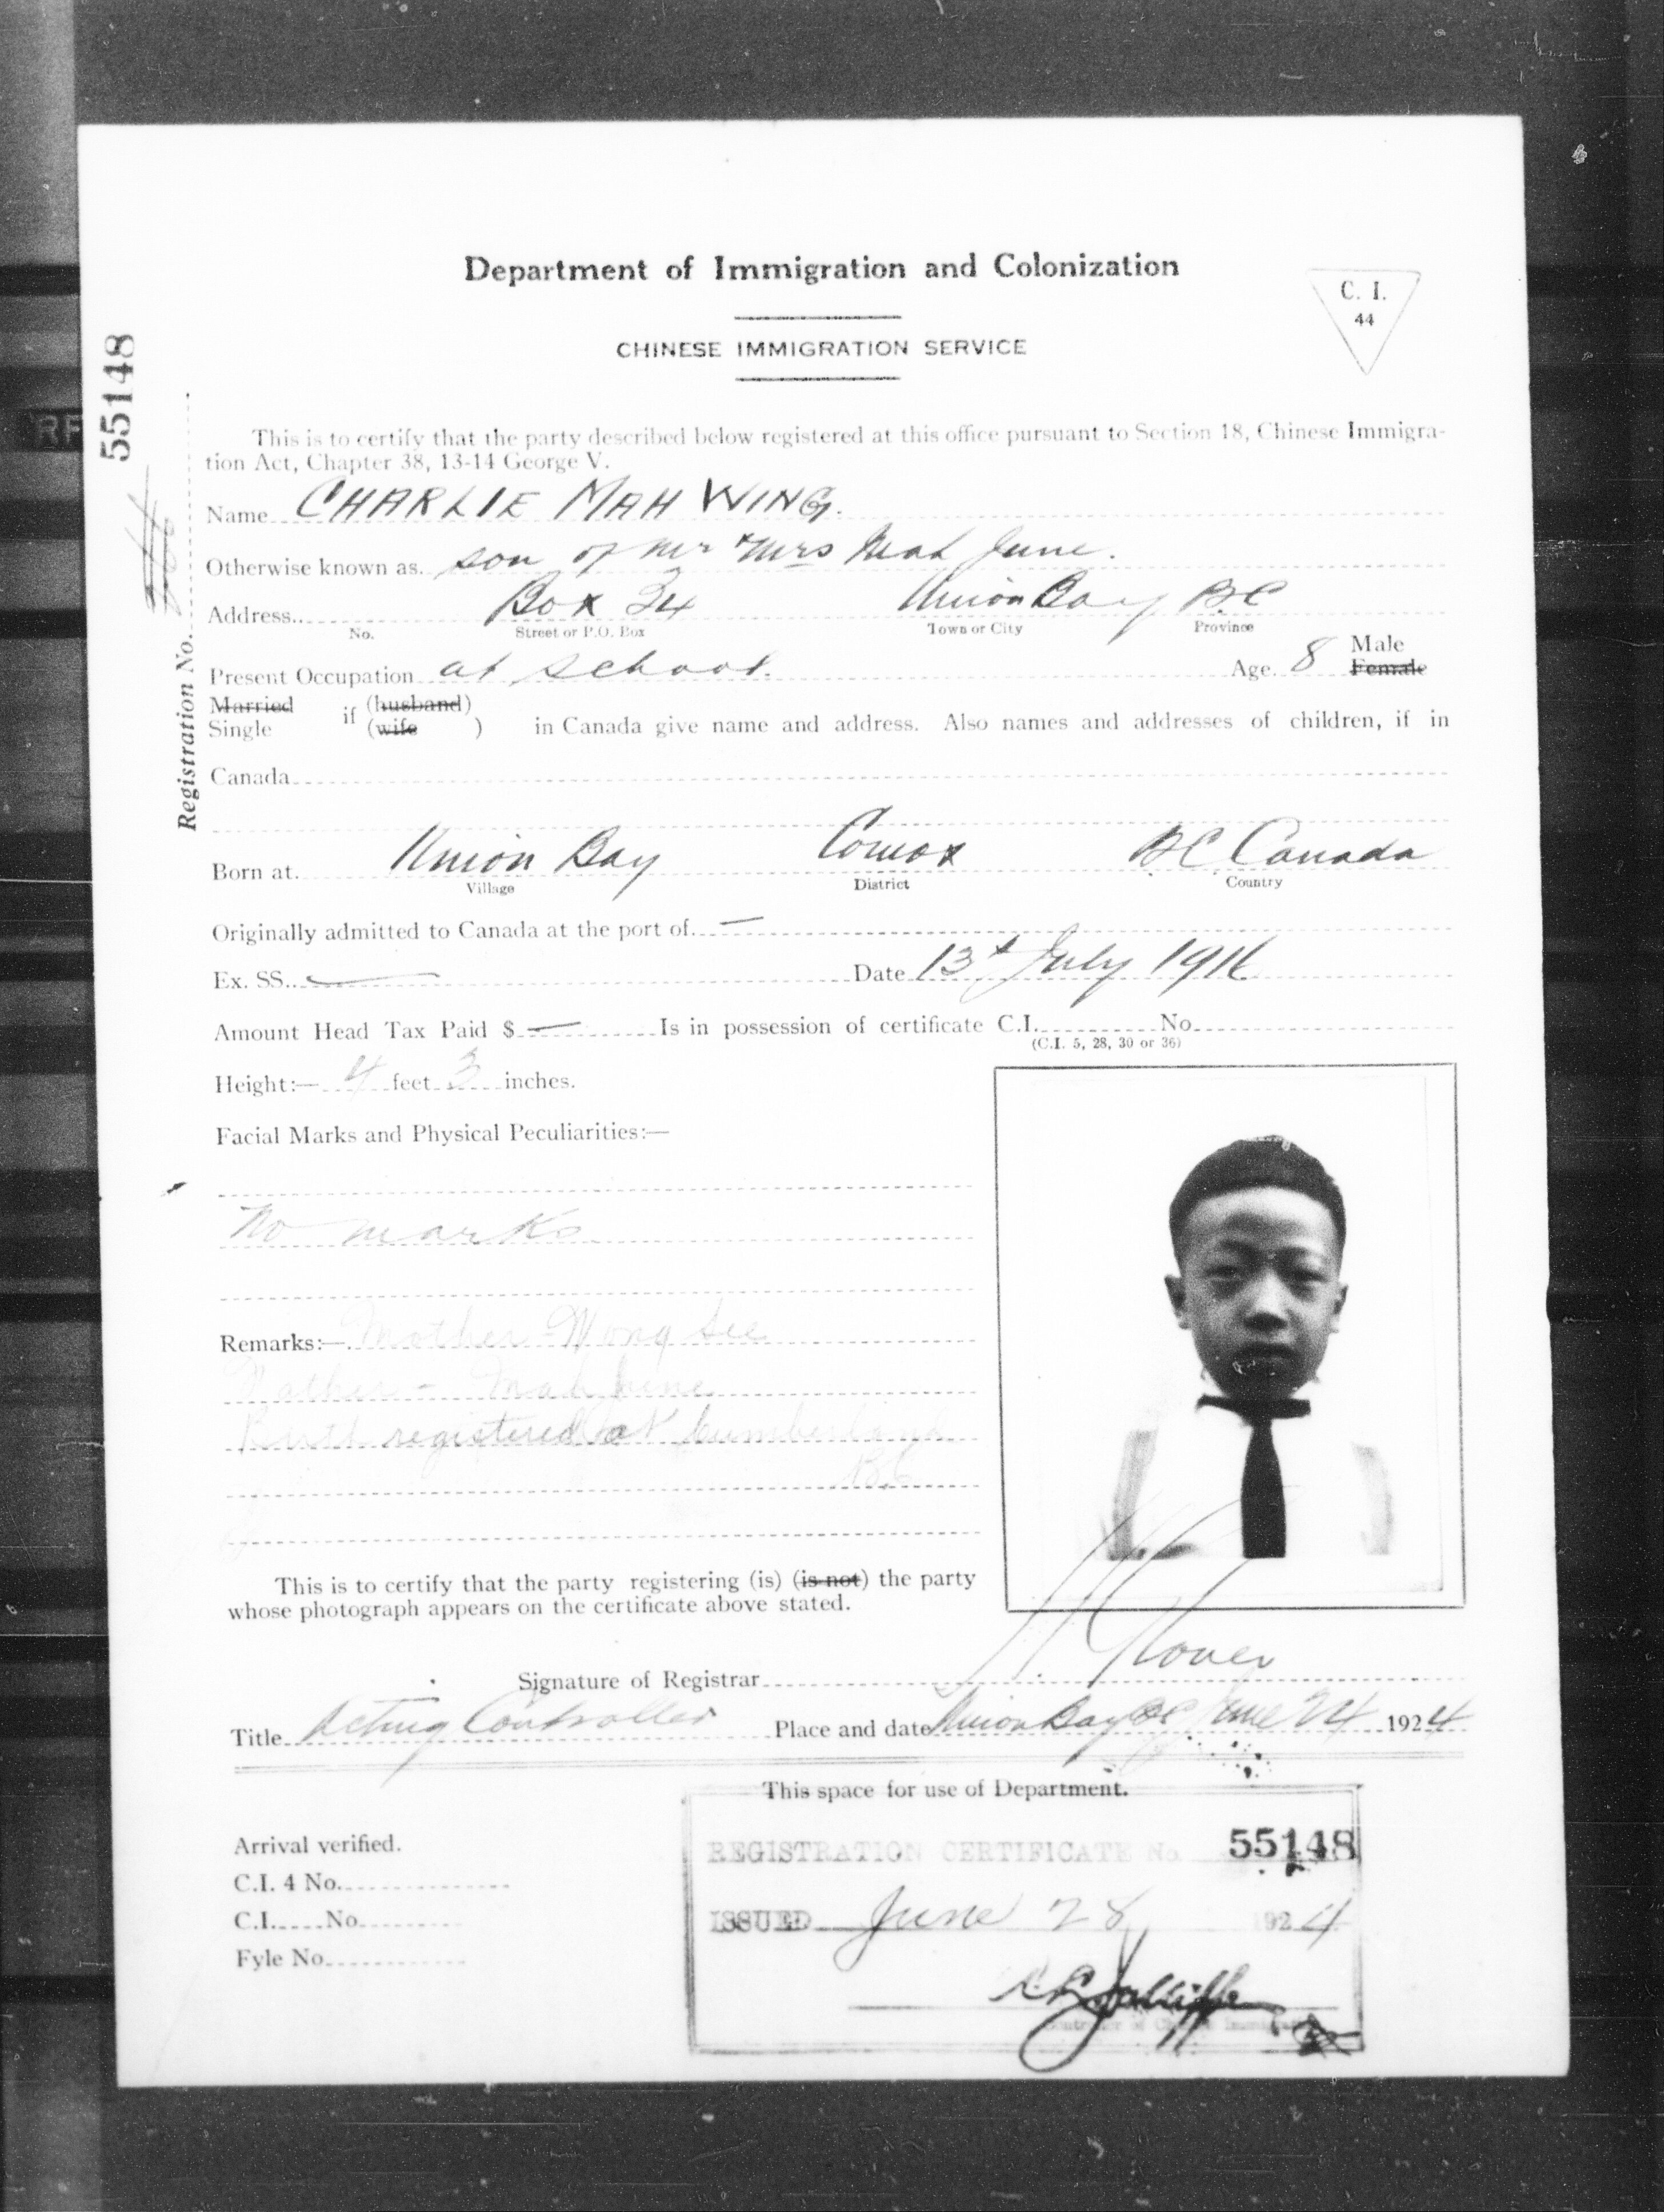 Department of Immigration and Colonization
C. I.
44
CHINESE IMMIGRATION SERVICE
55148
Registration No.
This is to certify that the party described below registered at this office pursuant to Section 18, Chinese Immigra-
tion Act, Chapter 38, 13-14 George V.
Name CHARLIE MAH WING.
Otherwise known as. son of Mr & Mrs Mah June.
Address Box 24 Union Bay BC
No. Street or P.O. Box Town or City Province
Present Occupation at school. Age. 8 Male Female
Married
Single if (husband) (wife ) in Canada give name and address. Also names and addresses of children, if in
Canada
Born at. Union Bay Comox BC Canada
Village District Country
Originally admitted to Canada at the port of. —
Ex. SS. — Date 13th July 1916
Amount Head Tax Paid $ — Is in possession of certificate C.I. No.
(C.I. 5, 28, 30 or 36)
Height:— 4 feet 3 inches.
Facial Marks and Physical Peculiarities:—
No marks
Remarks:— Mother - Wong See
Father - Mah June
Birth registered at Cumberland
B.C.
This is to certify that the party registering (is) (is not) the party
whose photograph appears on the certificate above stated.
Signature of Registrar Glover
Title Acting Controller Place and date Union Bay BC June 24 1924
This space for use of Department.
Arrival verified.
C.I. 4 No.
C.I. No.
Fyle No.
REGISTRATION CERTIFICATE No 55148
ISSUED June 28 1924
Controller of Chinese Immigration